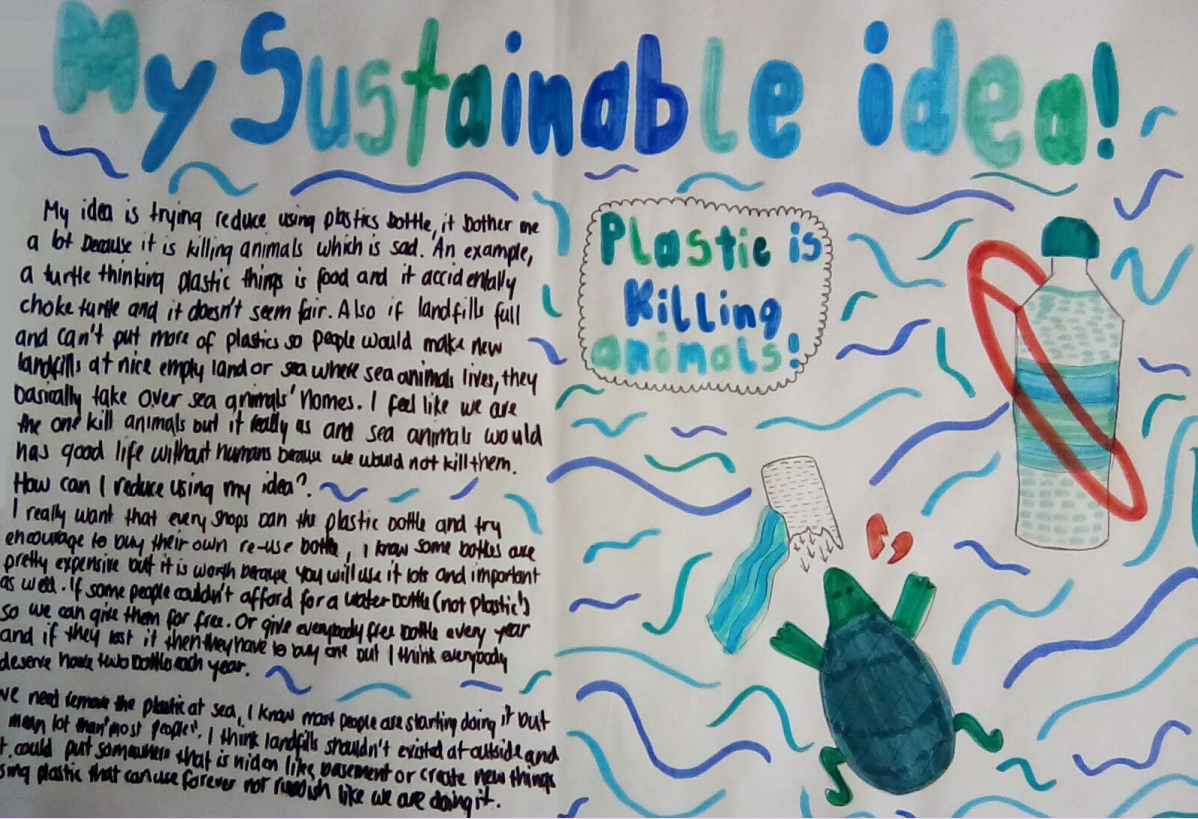 My Sustainable idea!
My idea is trying reduce using plastics bottle, it bother me
a lot because it is killing animals which is sad. An example,
a turtle thinking plastic things is food and it accidentally
choke turtle and it doesn't seem fair. Also if landfills full
and can't put more of plastics so people would make new
landfills at nice empty land or sea where sea animals lives, they
basically take over sea animals' homes. I feel like we are
the one kill animals but it really us and sea animals would
has good life without humans because we would not kill them.
How can I reduce using my idea?
I really want that every shops ban the plastic bottle and try
encourage to buy their own re-use bottle, I know some bottles are
pretty expensive but it is worth because you will use it lots and important
as well. If some people couldn't afford for a water bottle (not plastic!)
so we can give them for free. Or give everybody free bottle every year
and if they lost it then they have to buy one but I think everybody
deserve have two bottle each year.
we need remove the plastic at sea, I know most people are starting doing it but
mean lot than most people. I think landfills shouldn't existed at outside and
could put somewhere that is hiden like basement or create new things
using plastic that can use forever not rubbish like we are doing it.
Plastic is
Killing
animals!